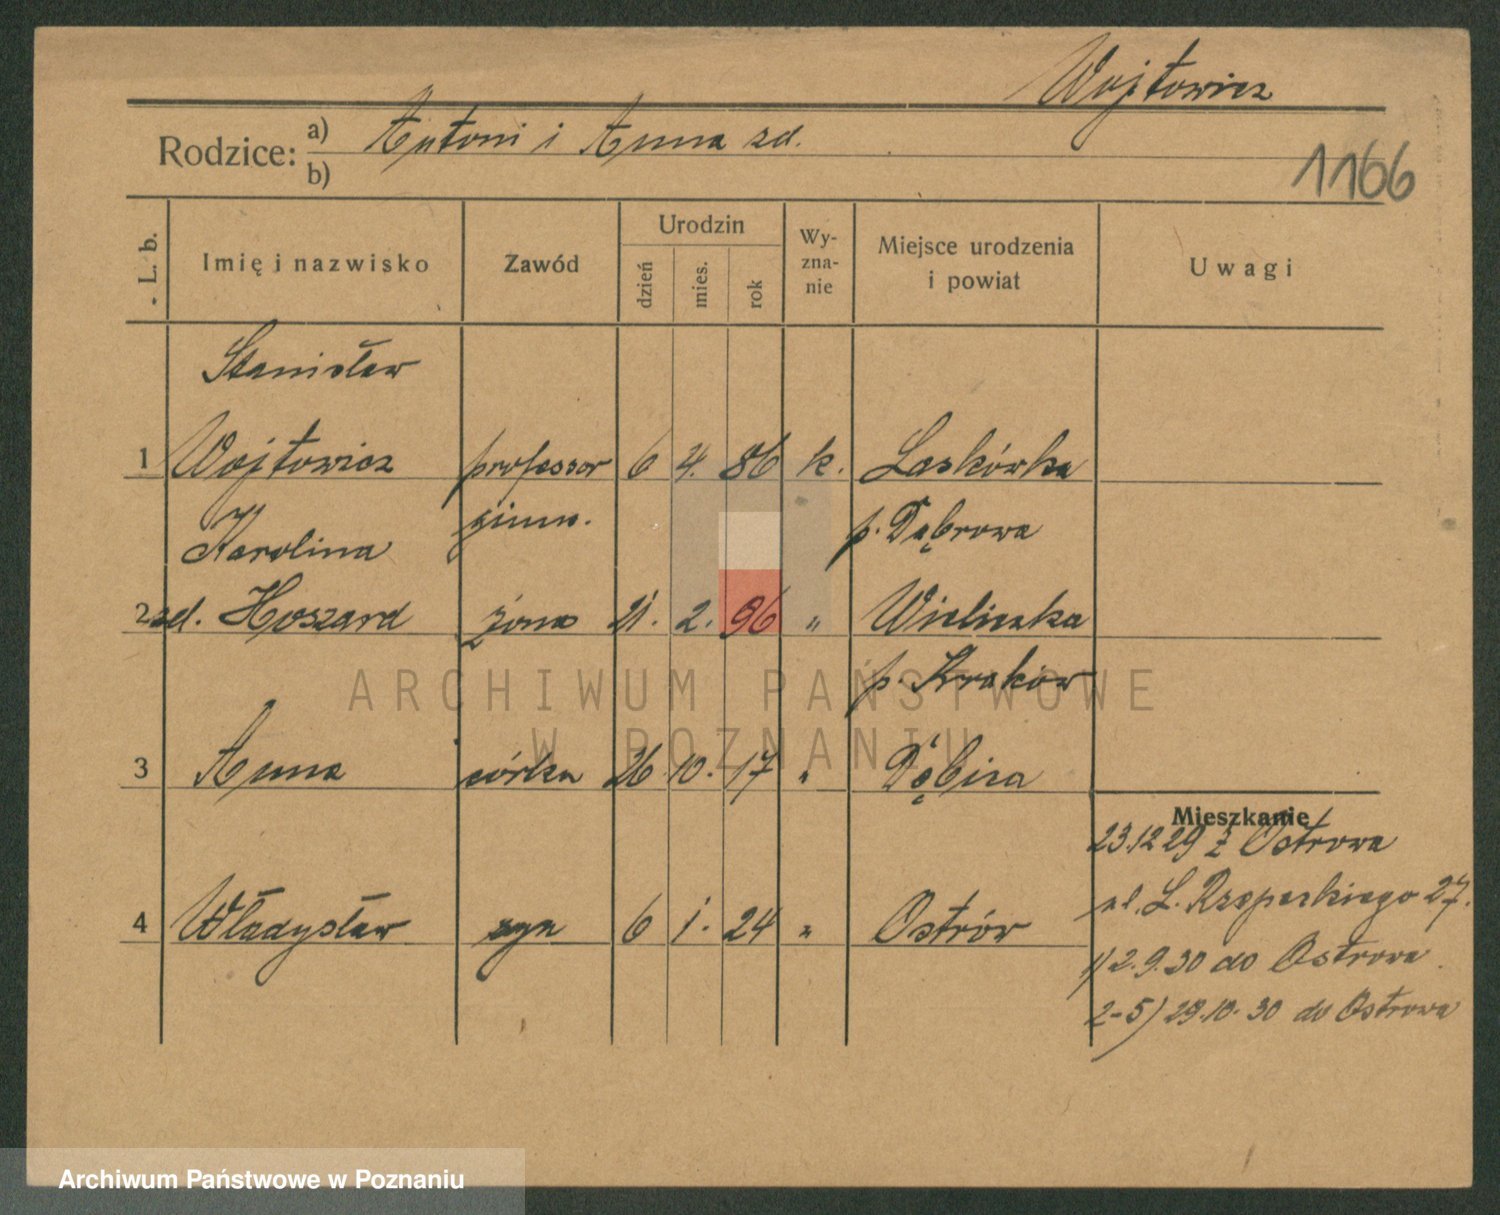 Wojtowicz
Rodzice: a) Antoni i Anna zd.
b)
1166
L. b.
Imię i nazwisko
Zawód
Urodzin
dzień
mies.
rok
Wy-
zna-
nie
Miejsce urodzenia
i powiat
Uwagi
Stanisław
1 Wojtowicz professor 6 4. 86 k. Laskówka
gimn. p. Dąbrowa
Karolina
2 zd. Hoszard żona 21. 2. 96 " Wieliczka
p. Kraków
3 Anna córka 26 10. 17 "
Mieszkanie
23.12 29 z Ostrowa
4 Władysław syn 6 1. 24 " Ostrów
ul. L. Rzepeckiego 27.
1) 2.9.30 do Ostrowa
2-5) 29.10.30 do Ostrowa
ARCHIWUM PAŃSTWOWE
W POZNANIU
Archiwum Państwowe w Poznaniu